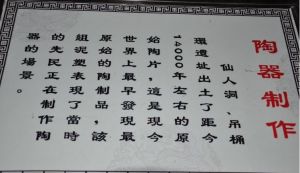 陶器制作
仙人洞、吊桶
環遺址出土了距今
14000年左右的原
始陶片，這是現今
世界上最早發現最
原始的陶制品，該
組泥塑表現了當時
的先民正在制作陶
器的場景。